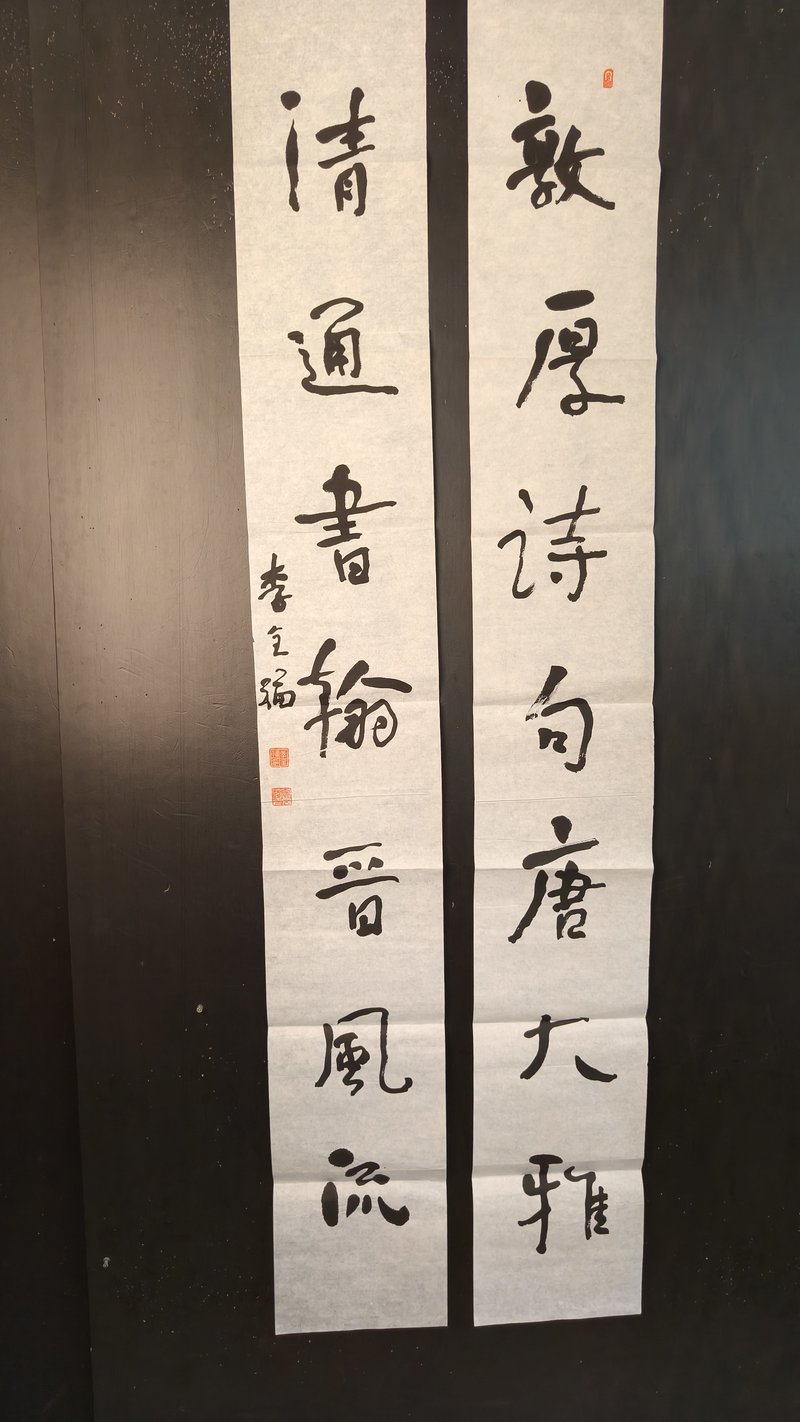 敦厚诗句唐大雅
清通書翰晉風流
李全福